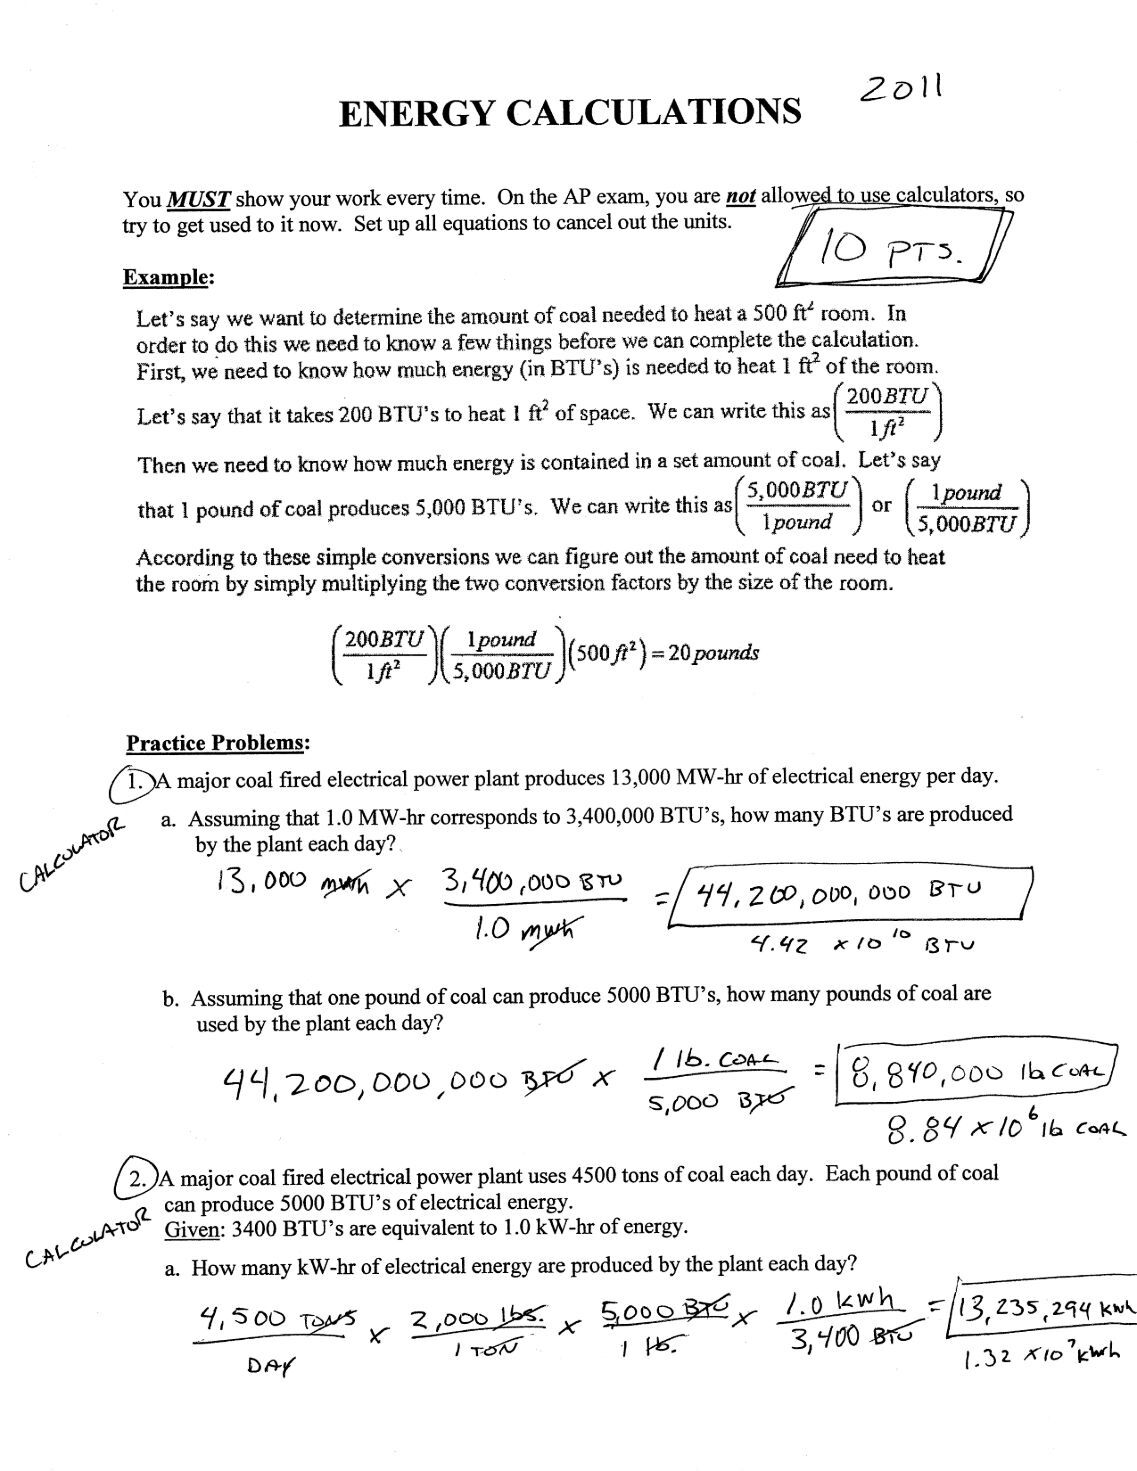 2011
ENERGY CALCULATIONS
You MUST show your work every time. On the AP exam, you are not allowed to use calculators, so
try to get used to it now. Set up all equations to cancel out the units.
10 PTS.
Example:
Let's say we want to determine the amount of coal needed to heat a 500 ft² room. In
order to do this we need to know a few things before we can complete the calculation.
First, we need to know how much energy (in BTU's) is needed to heat 1 ft² of the room.
Let's say that it takes 200 BTU's to heat 1 ft² of space. We can write this as (200BTU / 1ft²)
Then we need to know how much energy is contained in a set amount of coal. Let's say
that 1 pound of coal produces 5,000 BTU's. We can write this as (5,000BTU / 1pound) or (1pound / 5,000BTU)
According to these simple conversions we can figure out the amount of coal need to heat
the room by simply multiplying the two conversion factors by the size of the room.
(200BTU / 1ft²)(1pound / 5,000BTU)(500ft²) = 20pounds
Practice Problems:
1. A major coal fired electrical power plant produces 13,000 MW-hr of electrical energy per day.
CALCULATOR
a. Assuming that 1.0 MW-hr corresponds to 3,400,000 BTU's, how many BTU's are produced
by the plant each day?
13,000 mwh x 3,400,000 BTU / 1.0 mwh = 44,200,000,000 BTU
4.42 x 10¹⁰ BTU
b. Assuming that one pound of coal can produce 5000 BTU's, how many pounds of coal are
used by the plant each day?
44,200,000,000 BTU x 1 lb. COAL / 5,000 BTU = 8,840,000 lb COAL
8.84 x 10⁶ lb COAL
2. A major coal fired electrical power plant uses 4500 tons of coal each day. Each pound of coal
can produce 5000 BTU's of electrical energy.
CALCULATOR
Given: 3400 BTU's are equivalent to 1.0 kW-hr of energy.
a. How many kW-hr of electrical energy are produced by the plant each day?
4,500 TONS / DAY x 2,000 lbs. / 1 TON x 5,000 BTU / 1 lb. x 1.0 kwh / 3,400 BTU = 13,235,294 kwh
1.32 x 10⁷ kwh